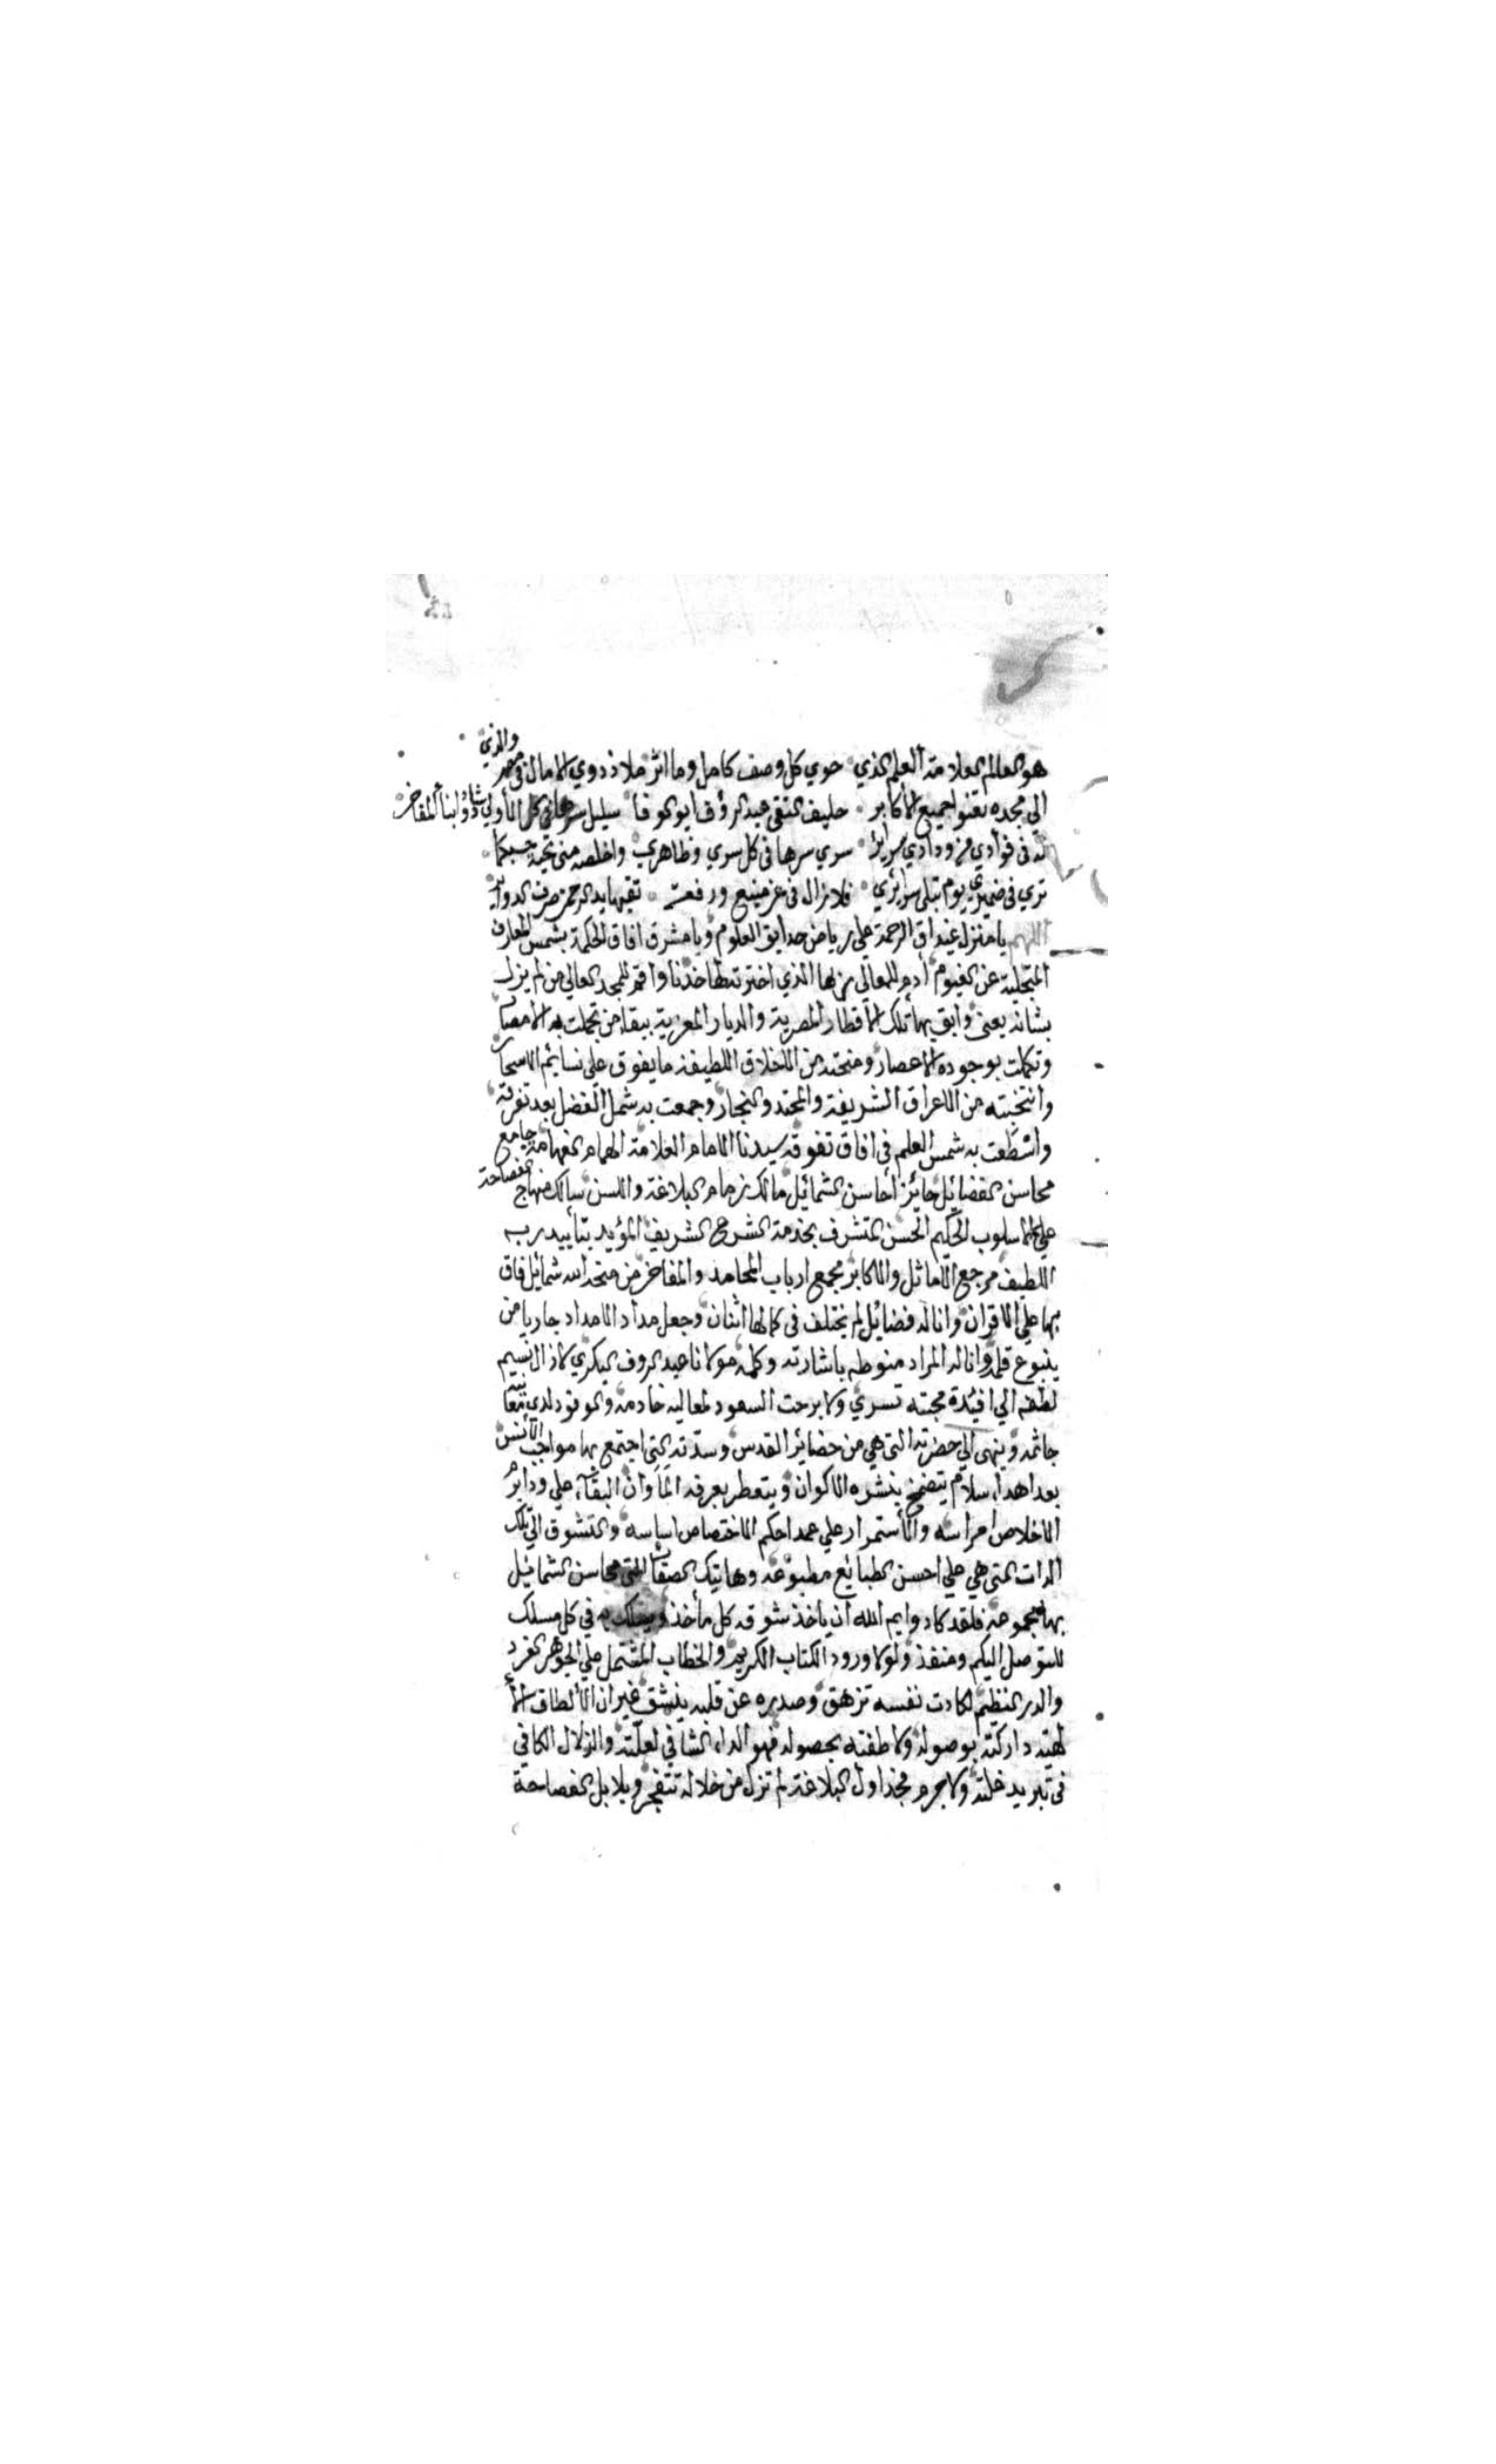 هو العالم العلامة العلم الذي حوي كل وصف كامل ومااثر ملاذ ذوي الامال في مصر والذي
الى مجده تعنوا جميع الاكابر حليف التقى عبد الرؤف ابو الوفا سليل
له في فوادي من ودادي سراير سري سرها في كل سري وظاهري واخلصه مني تحية
تري في ضميري يوم تبلى سرائري فلا زال في عز منيع ورفعة تقيها يد الرحمن صرف الدواير
اللهم يا منزل غيداق الرحمة علي رياض حدايق العلوم ويا مشرق افاق الحكمة بشمس المعارف
المتجلية عن الغيوم أدم للمعالي ربها الذي اخترته لها خدنا واقم للمجد العالي من لم يزل
بشانه يعنى وابق بهاء تلك الاقطار المصرية والديار المعزية ببقاء من تجملت به الامصار
وتكملت بوجوده الاعصار ومنحته من الاخلاق اللطيفة ما يفوق علي نسايم الاسحار
وانتخبته من الاعراق الشريفة والمحتد والنجار وجمعت به شمل الفضل بعد تفرقه
واسطعت به شمس العلم في افاق تفوقه سيدنا الامام العلامة الهمام الفهامة جامع
محاسن الفضائل حائز أحاسن الشمائل مالك زمام البلاغة واللسن سالك منهاج الفصاحة
علي الاسلوب الحكيم الحسن المتشرف بخدمة الشرع الشريف المؤيد بتأييد ربه
اللطيف مرجع الاماثل والاكابر مجمع ارباب المحامد والمفاخر من منحه الله شمائل فاق
بها علي الاقران واناله فضائل لم يختلف في كمالها اثنان وجعل مداد الامداد جاريا من
ينبوع قلمه واناله المراد منوطه باشارته وكلمه مولانا عبد الروف البكري لا زال نسيم
لطفه الي افئدة محبته تسري ولا برحت السعود لمعاليه خادمة والوفود لدي
جاثمه وينهى الي حضرته التي هي من حضائر القدس وسدّته التي اجتمع بها مواجب الأنس
بعد اهداء سلام يتضمخ بنشره الاكوان ويتعطر بعرفه الماوان البقاء علي ود ابرم
الاخلاص امراسه والأستمرار علي عهد احكم الاختصاص اساسه والتشوق الي تلك
الذات التي هي علي احسن الطبائع مطبوعة وهاتيك الصفات التي محاسن الشمائل
بها مجموعه فلقد كاد وايم الله ان يأخذ شوقه كل مأخذ ويسلك به في كل مسلك
للتوصل اليكم ومنفذ ولولا ورود الكتاب الكريم والخطاب المشتمل علي الجوهر الفرد
والدر النظيم لكادت نفسه تزهق وصدره عن قلبه ينشق غير ان الألطاف الأ
لهيه داركته بوصوله ولاطفته بحصوله فهو الدواء الشافي لعلته والزلال الكافي
في تبريد غلته ولا جرم فجداول البلاغة لم تزل من خلاله تتفجر وبلابل الفصاحة